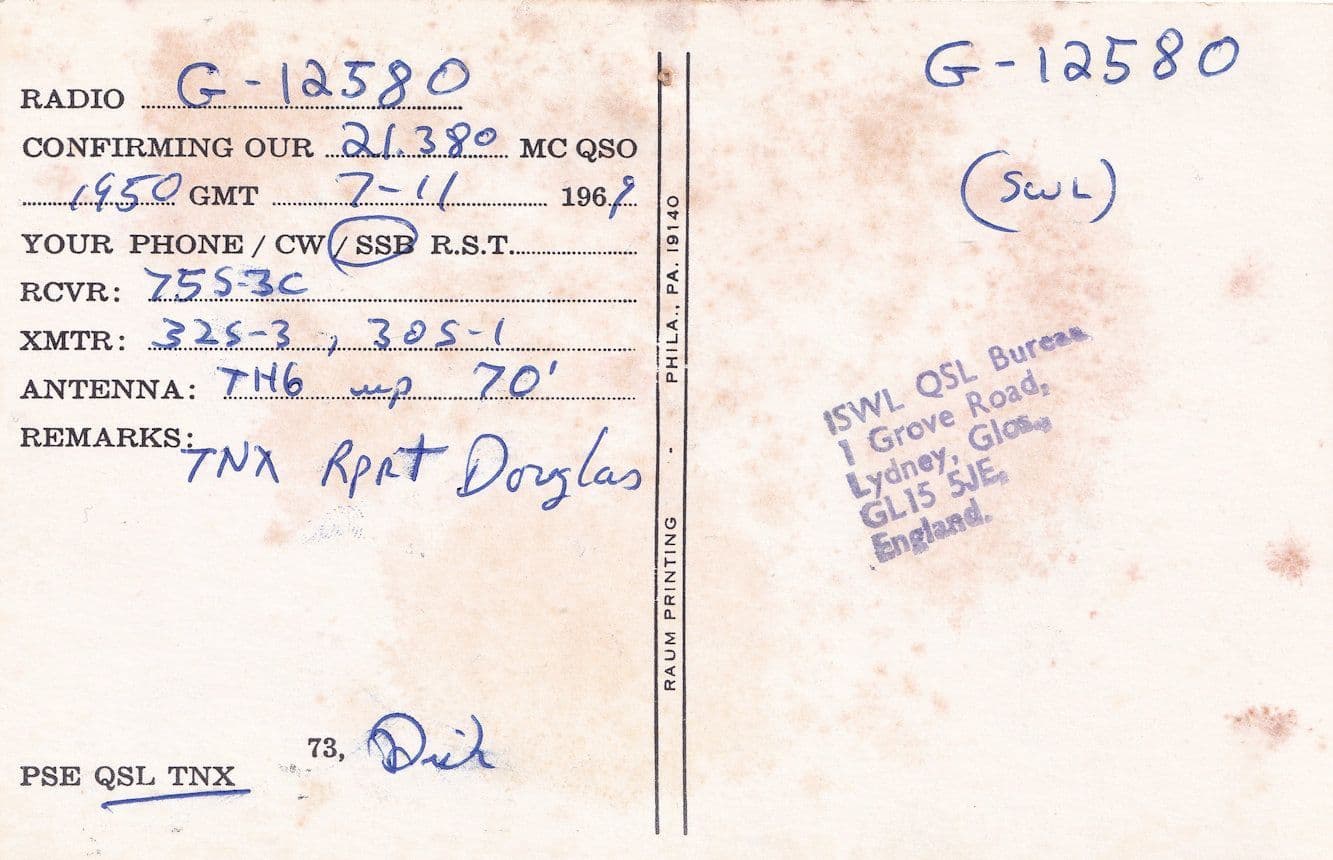 RADIO G-12580
CONFIRMING OUR 21.380 MC QSO
1950 GMT 7-11 1969
YOUR PHONE / CW / SSB R.S.T.
RCVR: 75S-3C
XMTR: 32S-3, 30S-1
ANTENNA: TH6 up 70'
REMARKS:
TNX Rprt Douglas
73, Dick
PSE QSL TNX
RAUM PRINTING - PHILA., PA. 19140
G-12580
(SWL)
ISWL QSL Bureau
1 Grove Road,
Lydney, Glos.,
GL15 5JE,
England.